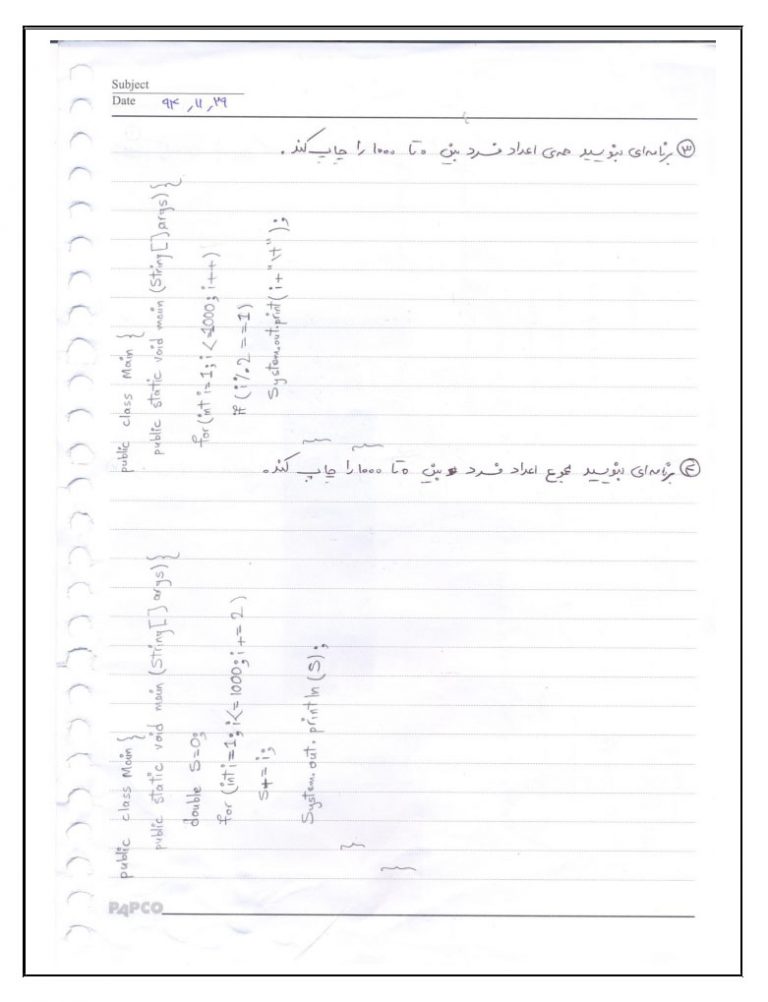 Subject
Date ۹۴ ,۱۱ ,۲۹
③ برنامه‌ای بنویسید همه‌ی اعداد فرد بین ۰ تا ۱۰۰۰ را چاپ کند.
public class Main {
public static void main (String[] args) {
for (int i=1; i<=1000; i++)
if (i%2==1)
System.out.print(i+"\t");
}
}
④ برنامه‌ای بنویسید مجموع اعداد فرد بین ۰ تا ۱۰۰۰ را چاپ کند.
public class Main {
public static void main (String[] args) {
double S=0;
for (int i=1; i<=1000; i+=2)
S+=i;
System.out.println(S);
}
}
PAPCO